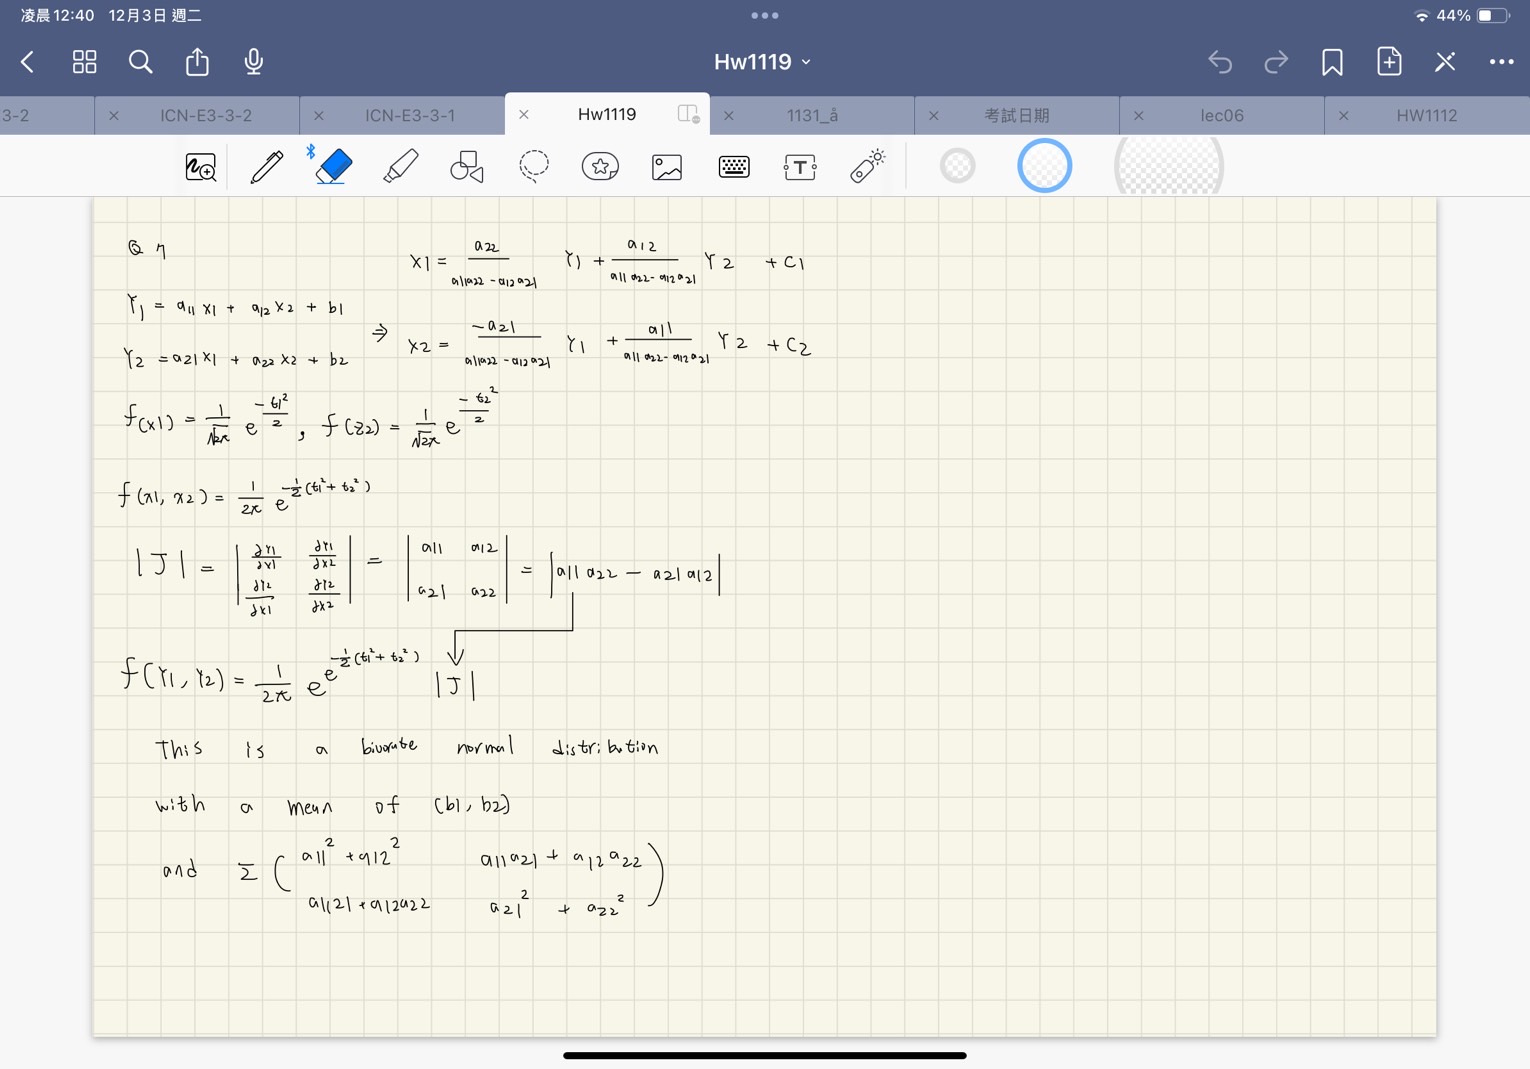 凌晨12:40 12月3日 週二
44%
Hw1119
3-2
ICN-E3-3-2
ICN-E3-3-1
Hw1119
1131_å
考試日期
lec06
HW1112
Q 7
x1 = a22/(a11a22 - a12a21) Y1 + a12/(a11a22 - a12a21) Y2 + c1
Y1 = a11 x1 + a12 x2 + b1
⇒ x2 = -a21/(a11a22 - a12a21) Y1 + a11/(a11a22 - a12a21) Y2 + c2
Y2 = a21 x1 + a22 x2 + b2
f(x1) = 1/√2π e^(-t1²/2) , f(z2) = 1/√2π e^(-t2²/2)
f(x1, x2) = 1/2π e^(-1/2(t1² + t2²))
|J| = | ∂Y1/∂x1 ∂Y1/∂x2 ∂Y2/∂x1 ∂Y2/∂x2 | = | a11 a12 a21 a22 | = |a11 a22 - a21 a12|
f(Y1, Y2) = 1/2π e^e^(-1/2(t1² + t2²)) |J|
This is a bivorate normal distribution
with a mean of (b1, b2)
and Σ ( a11² + a12² a11a21 + a12a22
a1121 + a12a22 a21² + a22² )